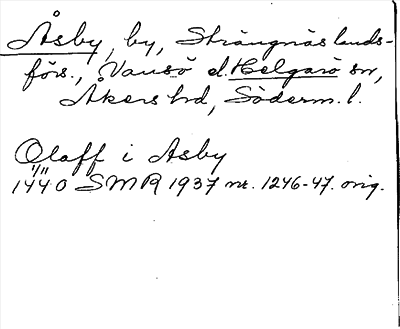 Åsby, by, Strängnäs lands-
förs., Vansö d. Helgarö sn,
Åkers hd, Söderm. l.
Olaff i Asby
1/11
1440 SMR 1937 nr. 1246-47. orig.